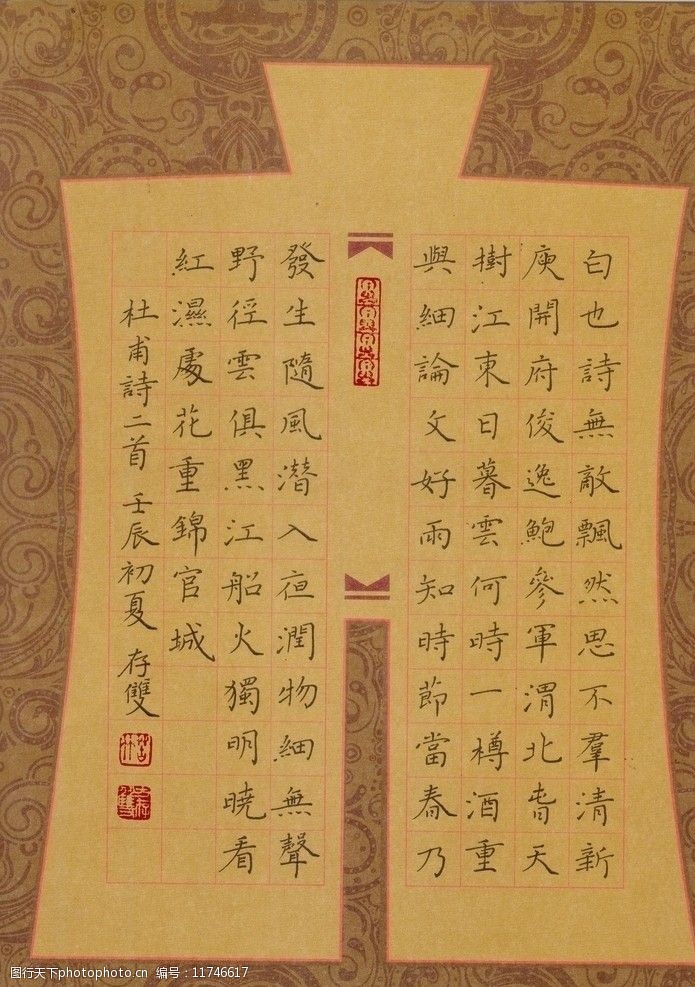 白也詩無敵飄然思不羣清新
庾開府俊逸鮑參軍渭北旾天
樹江東日暮雲何時一樽酒重
與細論文好雨知時節當春乃
發生隨風潛入夜潤物細無聲
野徑雲俱黑江船火獨明曉看
紅濕處花重錦官城
杜甫詩二首 壬辰初夏 存雙
图行天下photophoto.cn 编号：11746617